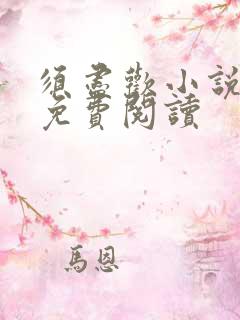 須盡歡小說
免費閱讀
馬恩